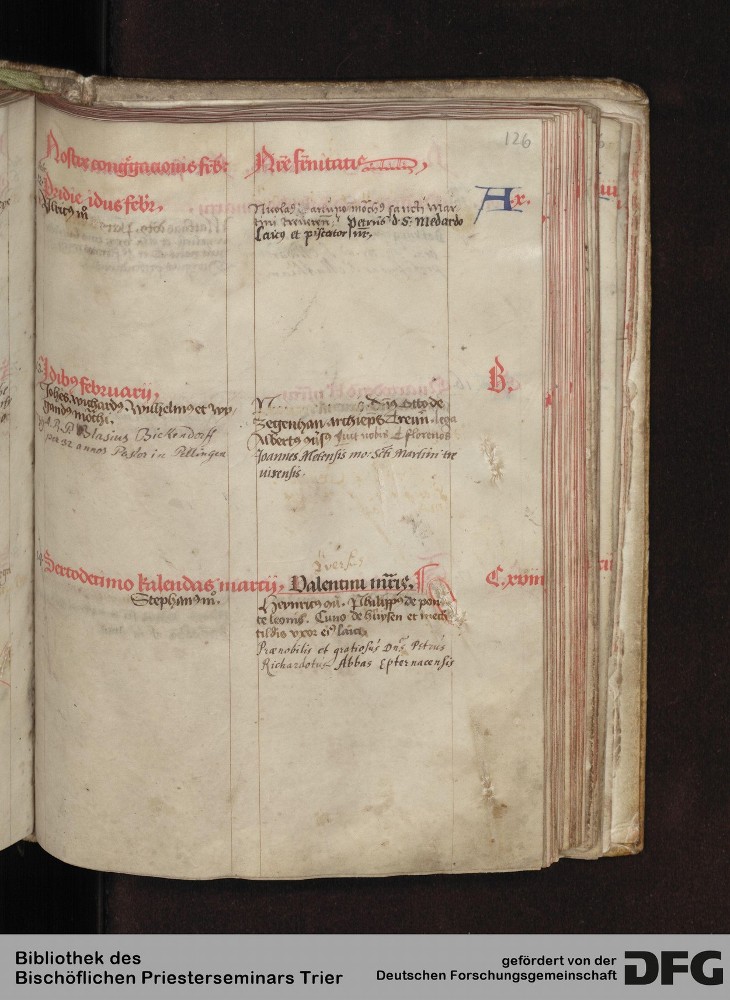 126
Nostre congregacionis febr
Nre frnitatis
Pridie idus febr.
A.x.
m
Nicolaus mochus sancti Mar
tini Petrus d. S. Medardo
Laicus et piscator
Idibus februarii,
B.
Johes. Wilhelmus et
mochi.
Blasius Bickendorff
annos Pastor in Pellingen
N. Dns Otto de
Zegenhan Archieps Treuir
Albertus florenos
Joannes Metensis mo: Scti Martini tre
uirensis.
Sextodecimo kalendas marcij, Valentini mris.
C. xviii
Stephanus m.
Heynricus Philippus de pon
te leonis. Cuno de et mech
tildis vxor ei laici
Prænobilis et gratiosus Dns Petrus
Richardotus Abbas Epternacensis
Bibliothek des
Bischöflichen Priesterseminars Trier
gefördert von der
Deutschen Forschungsgemeinschaft
DFG